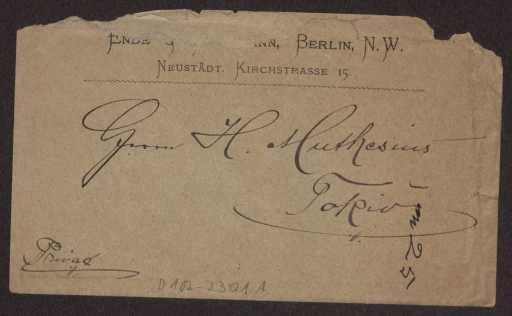 ENDE INN, BERLIN, N.W.
NEUSTÄDT. KIRCHSTRASSE 15
Herrn H. Muthesius
Tokio
Privat
D 102-2321 1